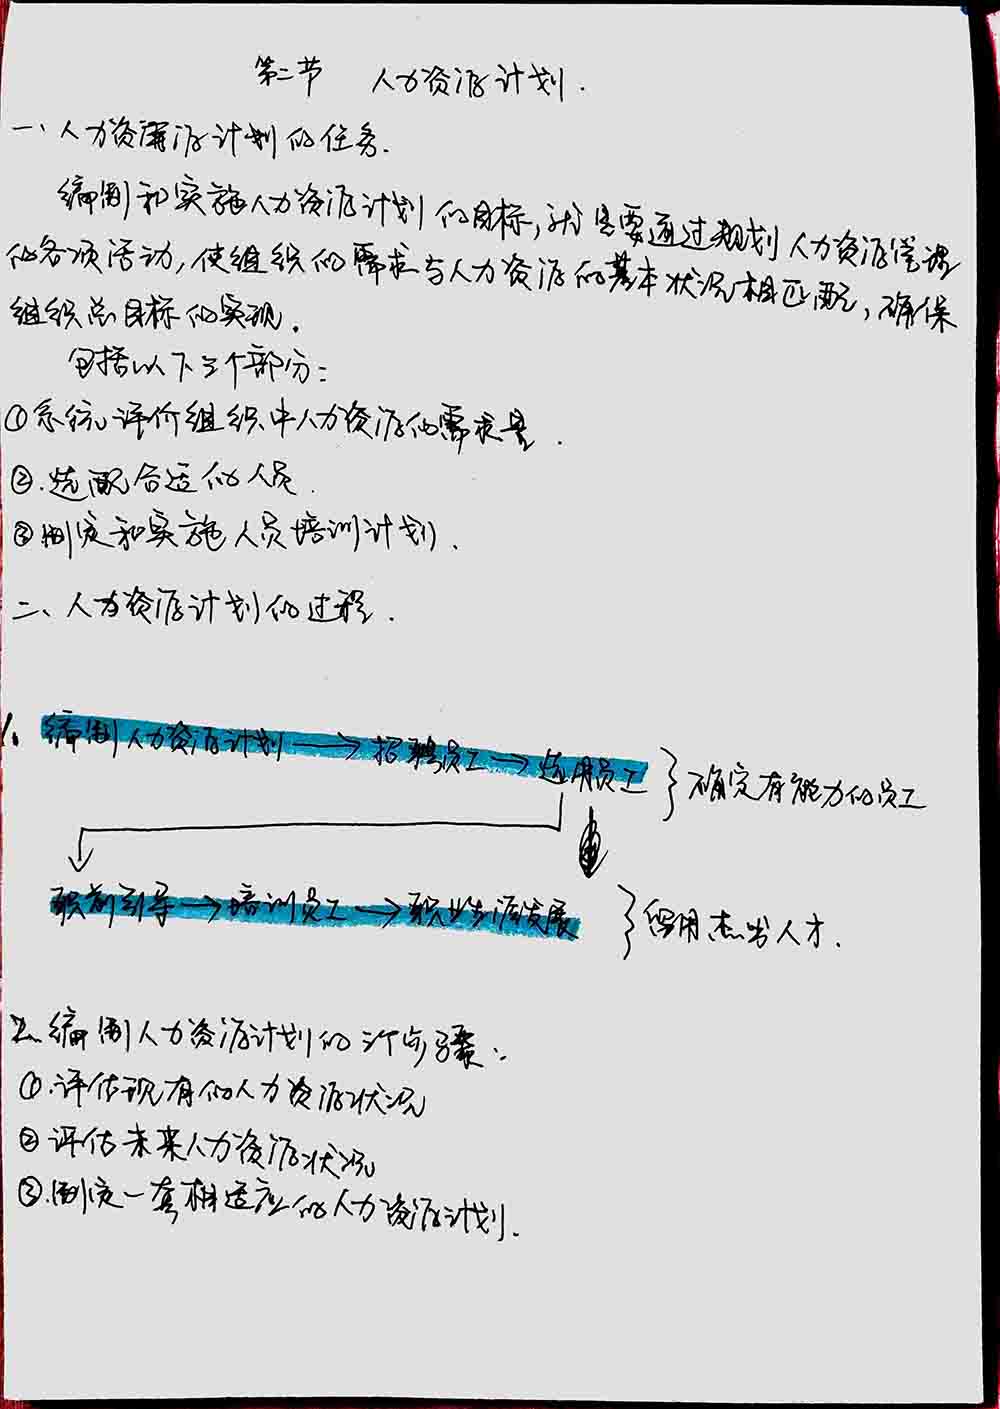 第二节 人力资源计划.
一、人力资源计划的任务.
编制和实施人力资源计划的目标,就是要通过规划人力资源管理
的各项活动,使组织的需求与人力资源的基本状况相匹配,确保
组织总目标的实现.
包括以下三个部分:
①系统评价组织中人力资源的需求量.
②.选配合适的人员.
③制定和实施人员培训计划.
二、人力资源计划的过程.
1、编制人力资源计划→招聘员工→选用员工}确定有能力的员工
职前引导→培训员工→职业生涯发展}留用杰出人才.
2、编制人力资源计划的三个步骤:
①.评估现有的人力资源状况
②评估未来人力资源状况
③.制定一套相适应的人力资源计划.